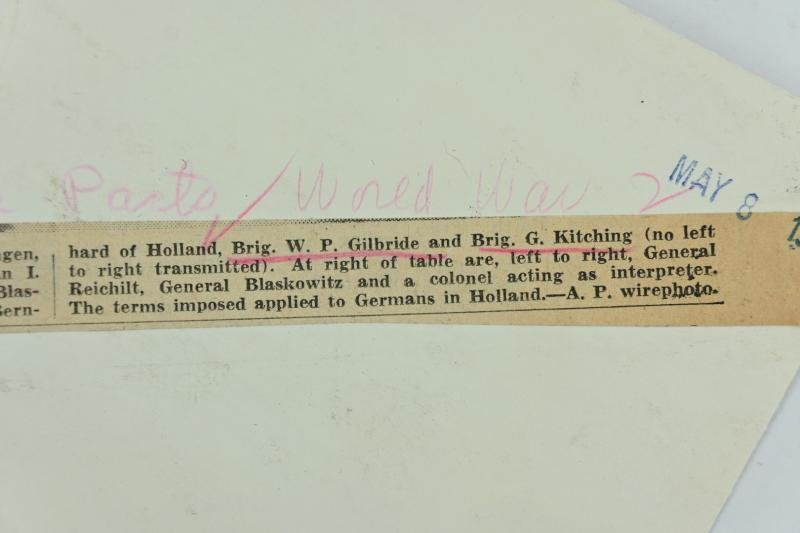 Parts / World War 2
MAY 8
gen,
n I.
Blas-
ern-
hard of Holland, Brig. W. P. Gilbride and Brig. G. Kitching (no left
to right transmitted). At right of table are, left to right, General
Reichilt, General Blaskowitz and a colonel acting as interpreter.
The terms imposed applied to Germans in Holland.—A. P. wirephoto.